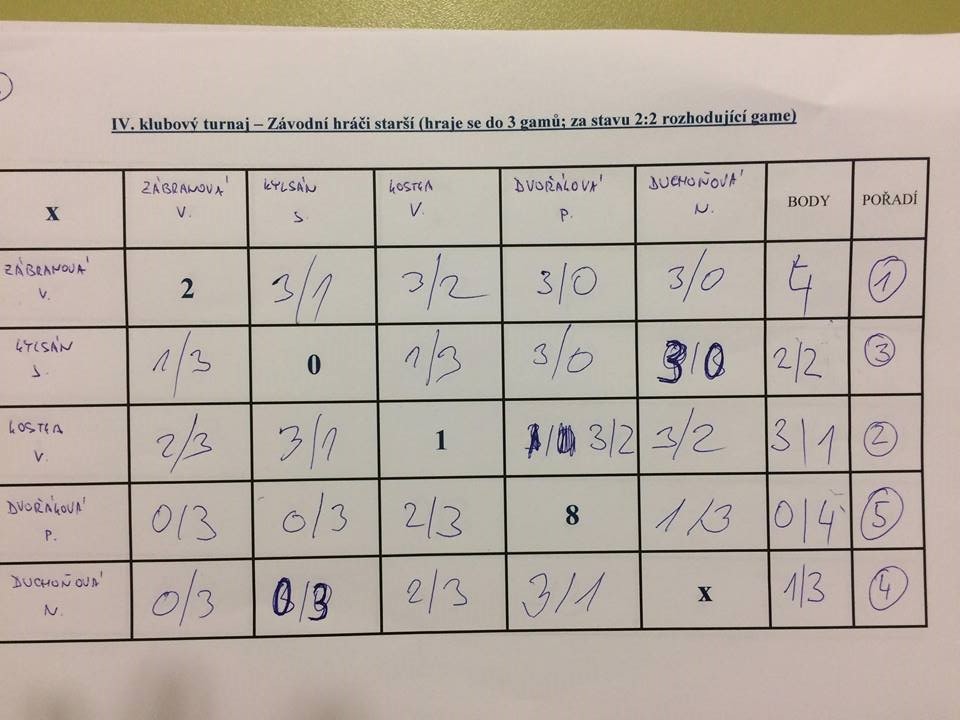 IV. klubový turnaj – Závodní hráči starší (hraje se do 3 gamů; za stavu 2:2 rozhodující game)
x ZÁBRANOVÁ V. KYLSÁN S. KOSTKA V. DVOŘÁKOVÁ P. DUCHOŇOVÁ N. BODY POŘADÍ
ZÁBRANOVÁ V. 2 3/1 3/2 3/0 3/0 4 1
KYLSÁN S. 1/3 0 1/3 3/0 3/0 2/2 3
KOSTKA V. 2/3 3/1 1 3/2 3/2 3/1 2
DVOŘÁKOVÁ P. 0/3 0/3 2/3 8 1/3 0/4 5
DUCHOŇOVÁ N. 0/3 0/3 2/3 3/1 x 1/3 4